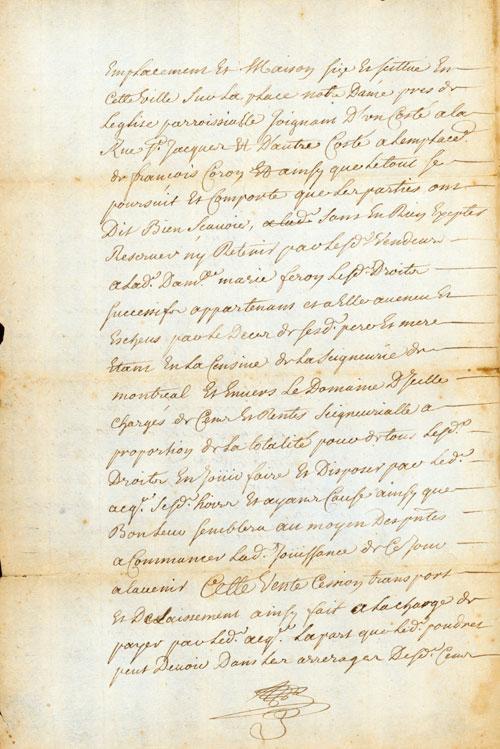 Emplacement Et Maison size Et scittue En
Cette Ville Sur La place notre Dame pres de
Leglise parroissialle Joignant D'un Costé a la
Rue St. Jacques Et D'autre Costé a Lemplacemt.
de francois Coron Et ainsy que le tout se
poursuit Et Comporte que Les parties ont
Dit Bien Scavoir, a lad. Sans En Rien Excepter
Reserver n'y Retenir par Lesd. Vendeurs
a Lad. Damlle marie feron Lesd. Droits
Successifs appartenant et a Elle avenu Et
Escheus par Le Deces de sesd. pere Et mere
Etant En La Censive de La Seigneurie de
montreal Et Envers Le Domaine D'Icelle
Chargés de Cens Et Rentes Seigneurialle a
proportion de La totalité pour de tous Lesd.
Droits En Jouir faire Et Disposer par Led.
acqr. Sesd. hoirs Et ayans Cause ainsy que
Bon Leur Semblera au moyen Des pntes
a Commancer Lad. Jouissance de Ce Jour
a Lavenir Cette Vente Cession transport
Et Delaissement ainsy fait a La charge de
payer par Led. acqr. La part que Led. vendeur
peut Devoir Dans Les arrerages Desd. Cens